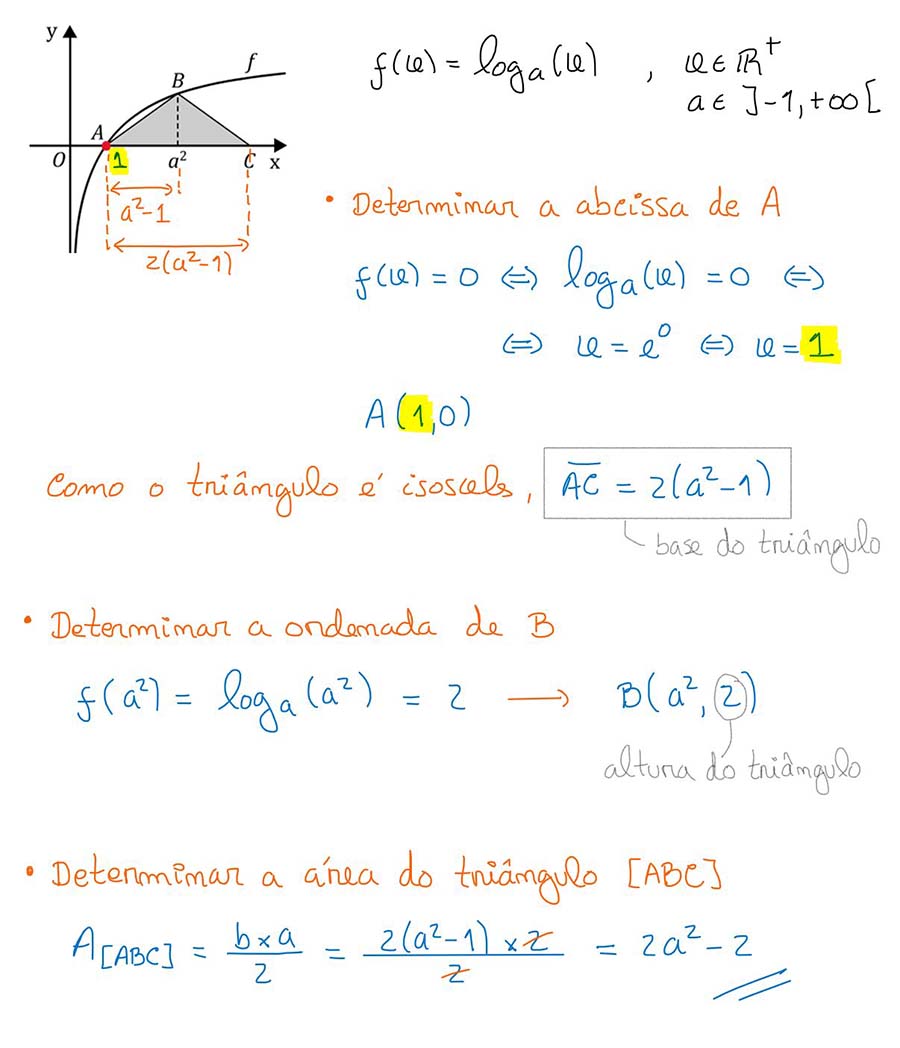 y
f
B
A
O
1
a²
C
x
a²-1
2(a²-1)
f(x) = logₐ(x) , x ∈ ℝ⁺
a ∈ ]-1,+∞[
• Determinar a abcissa de A
f(x) = 0 ⇔ logₐ(x) = 0 ⇔
⇔ x = e⁰ ⇔ x = 1
A(1,0)
Como o triângulo é isoscels, AC̅ = 2(a²-1)
base do triângulo
• Determinar a ordenada de B
f(a²) = logₐ(a²) = 2 → B(a², 2)
altura do triângulo
• Determinar a área do triângulo [ABC]
A[ABC] = b×a/2 = 2(a²-1)×2/2 = 2a²-2